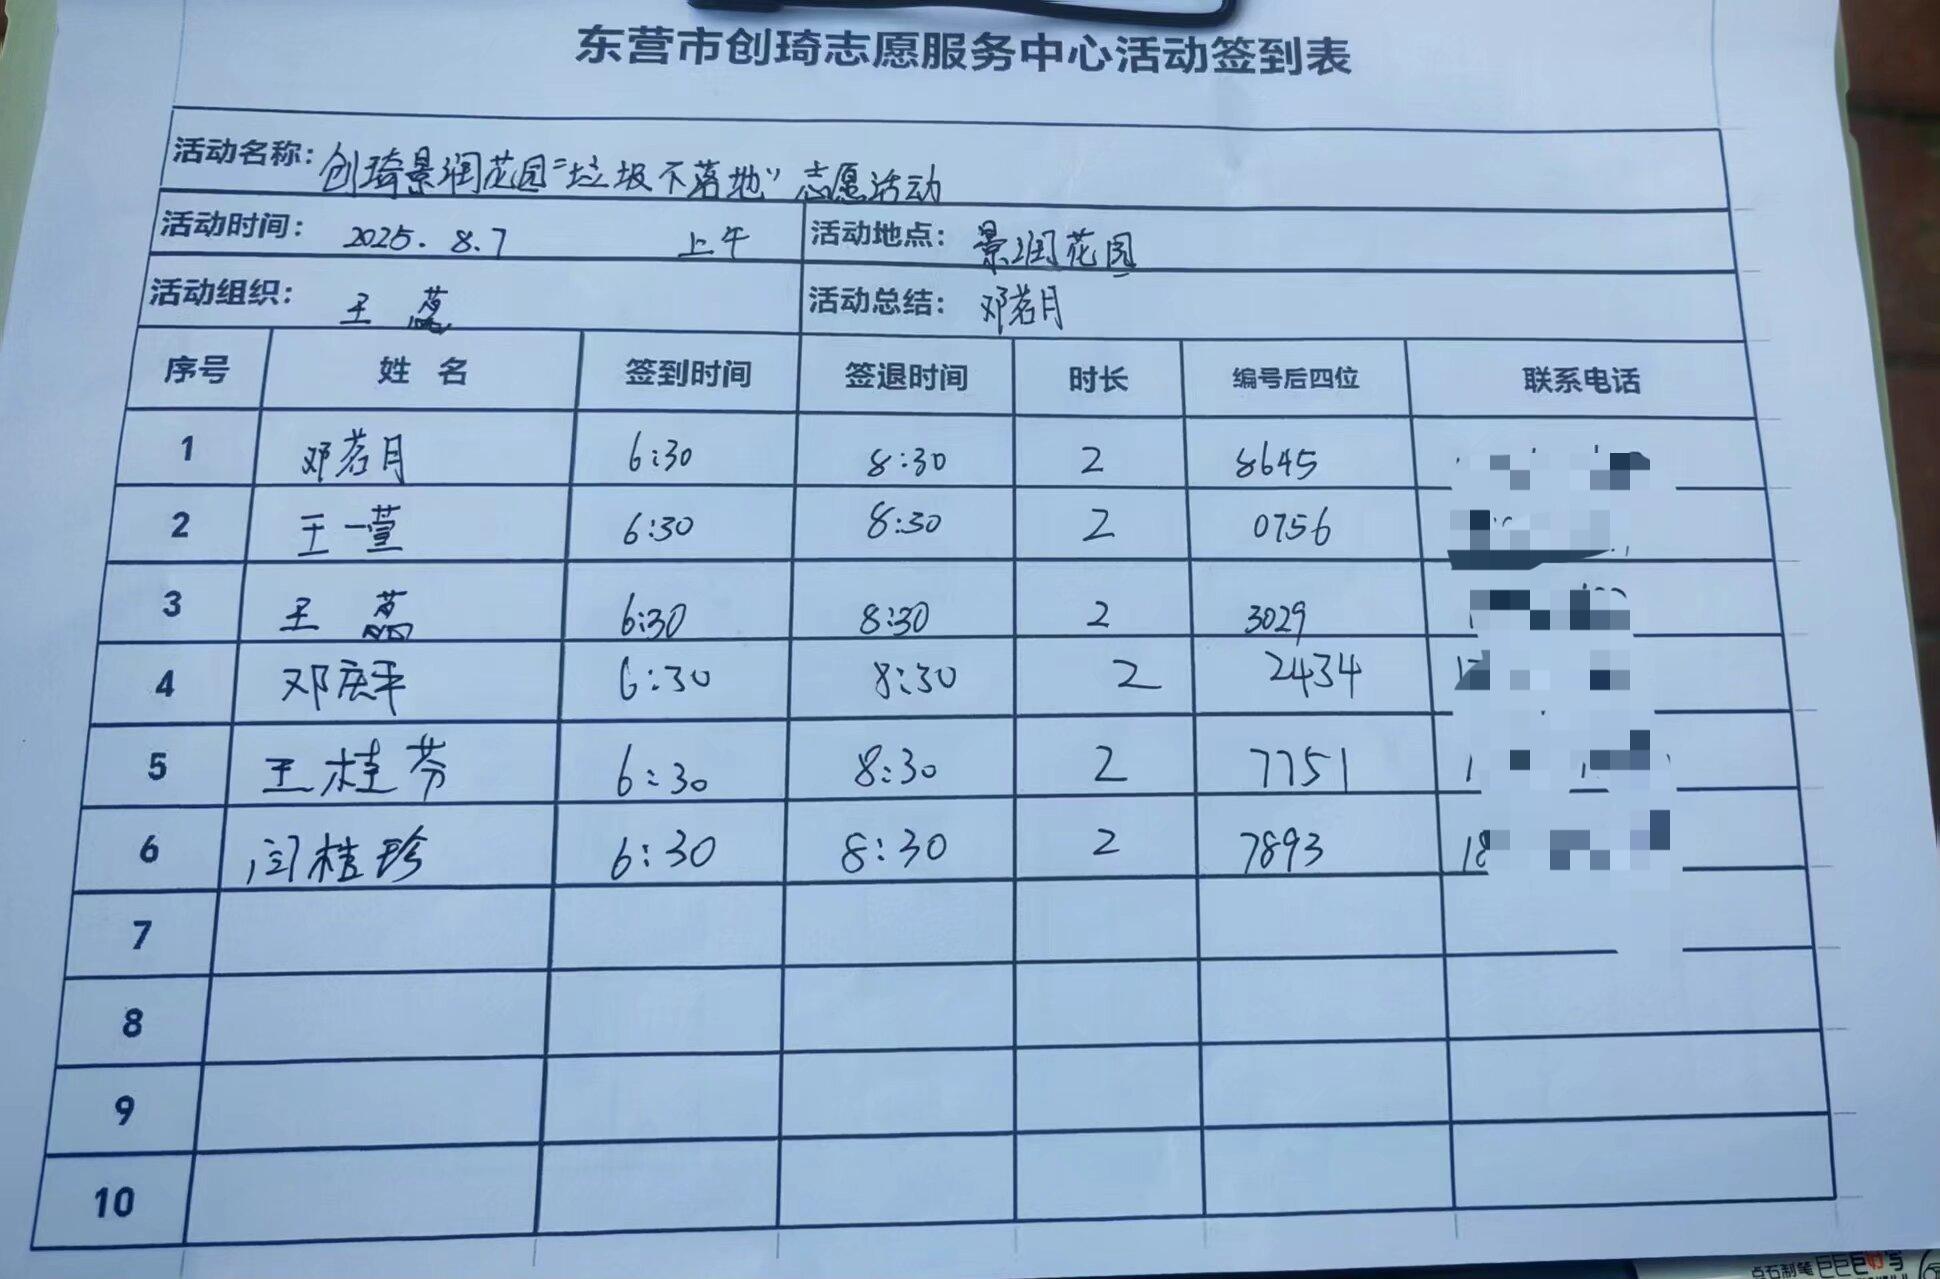 东营市创琦志愿服务中心活动签到表
活动名称：创琦景润花园"垃圾不落地"志愿活动
活动时间： 2025.8.7 上午 活动地点： 景润花园
活动组织： 王蕊 活动总结： 邓若月
序号 姓名 签到时间 签退时间 时长 编号后四位 联系电话
1 邓若月 6:30 8:30 2 8645
2 王一萱 6:30 8:30 2 0756
3 王蕊 6:30 8:30 2 3029
4 邓庆平 6:30 8:30 2 2434
5 王桂芬 6:30 8:30 2 7751
6 闫桂珍 6:30 8:30 2 7893 18
7
8
9
10
点石制笔